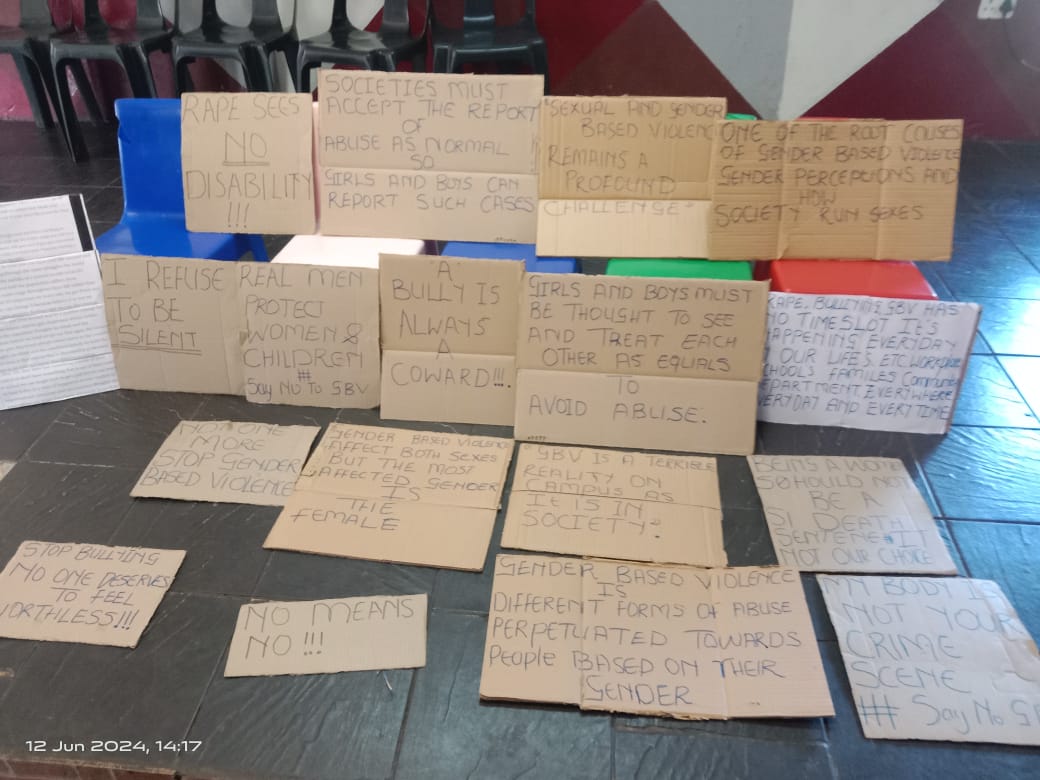 RAPE SEES
NO
DISABILITY
!!!
SOCIETIES MUST
ACCEPT THE REPORT
OF
ABUSE AS NORMAL
SO
GIRLS AND BOYS CAN
REPORT SUCH CASES
"SEXUAL AND GENDER
BASED VIOLENC
REMAINS A
PROFOUND
CHALLENGE"
ONE OF THE ROOT CAUSES
OF GENDER BASED VIOLENCE
GENDER PERCEPTIONS AND
HOW
SOCIETY RUN SEXES
I REFUSE
TO BE
SILENT
REAL MEN
PROTECT
WOMEN &
CHILDREN
#
Say No To GBV
A
BULLY IS
ALWAYS
A
COWARD!!!
GIRLS AND BOYS MUST
BE THOUGHT TO SEE
AND TREAT EACH
OTHER AS EQUALS
TO
AVOID ABUSE.
RAPE, BULLYING, GBV HAS
NO TIMESLOT IT'S
HAPPENING EVERYDAY
OUR LIFE'S. ETC. WORKPLACE
SCHOOLS FAMILIES Community
DEPARTMENT EVERYWHERE
EVERYDAY AND EVERY TIME
NOT ONE
MORE
STOP GENDER
BASED VIOLENCE
GENDER BASED VIOLENC
AFFECT BOTH SEXES
BUT THE MOST
AFFECTED GENDER
IS
THE
FEMALE
"GBV IS A TERRIBLE
REALITY ON
CAMPUS AS
IT IS IN
SOCIETY".
BEING A WOMA
SHOULD NOT
BE A
DEATH
SENTENE IT
NOT OUR CHOICE
STOP BULLYING
NO ONE DESERVES
TO FEEL
WORTHLESS!!!
NO MEANS
NO !!!
GENDER BASED VIOLENCE
IS
DIFFERENT FORMS OF ABUSE
PERPETUATED TOWARDS
PEOPLE BASED ON THEIR
GENDER
MY BODY I
NOT YOUR
CRIME
SCENE
# Say No
12 Jun 2024, 14:17